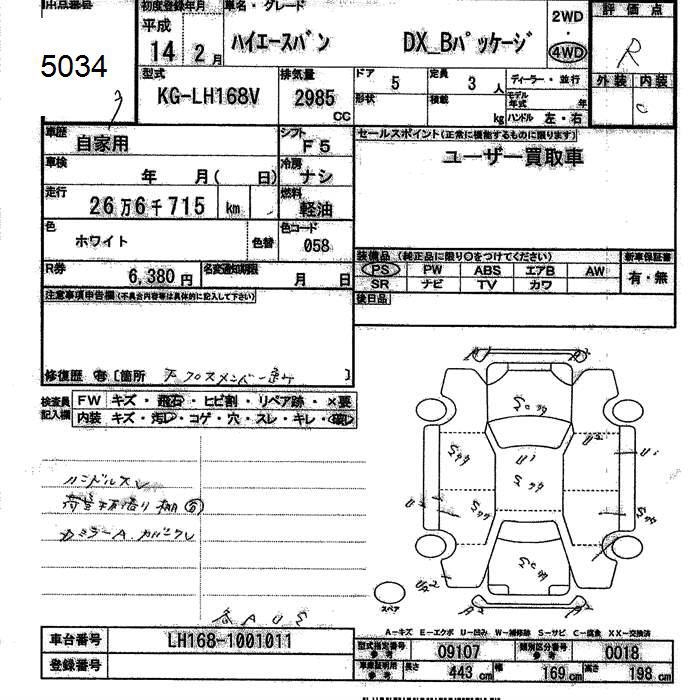 出品番号
5034
初度登録年月
平成
14 2月
車名・グレード
ハイエースバン DX_Bパッケージ
2WD
4WD
評価点
R
型式
KG-LH168V
排気量
2985
CC
ドア 5
定員 3 人
形状
積載 kg
ディーラー・並行
モデル年式 年
ハンドル 左・右
外装 内装
C
車歴
自家用
シフト
F5
車検
年 月( 日)
冷房
ナシ
走行
26万6千715 km
燃料
軽油
色
ホワイト
色替
色コード
058
R券
6,380円
名変通知期限
月 日
セールスポイント(正常に機能するものに限ります)
ユーザー買取車
装備品(純正品に限り〇をつけてください)
新車保証書
PS PW ABS エアB AW
SR ナビ TV カワ
有・無
後日品
注意事項申告欄(不具合内容等は具体的に記入して下さい)
修復歴 有 [箇所 ]
検査員記入欄
FW キズ・飛石・ヒビ割・リペア跡・×要
内装 キズ・汚レ・コゲ・穴・スレ・キレ・破レ
ハンドルスレ
スペア
A-キズ E-エクボ U-凹み W-補修跡 S-サビ C-腐食 XX-交換済
車台番号
LH168-1001011
登録番号
型式指定番号参考
09107
類別区分番号参考
0018
車庫証明用参考
長さ 443 cm 幅 169 cm 高さ 198 cm